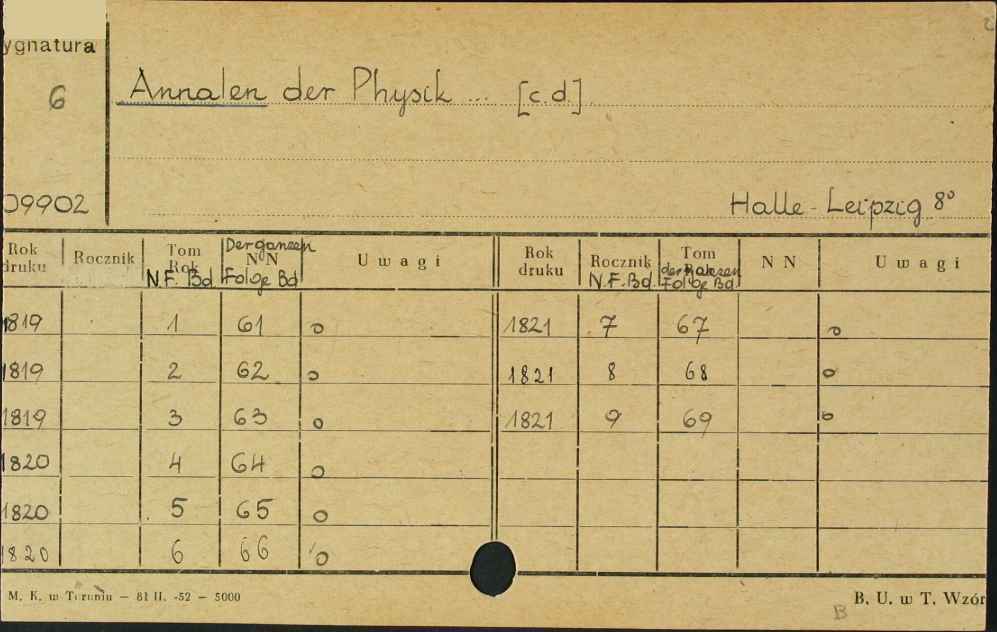 ygnatura
6
Annalen der Physik ... [c.d.]
09902
Halle-Leipzig 8°
Rok druku | Rocznik | Tom Rok N.F. Bd. | Der ganzen N N Folge Bd | Uwagi | Rok druku | Rocznik N.F. Bd. | Tom der ganzen Folge Bd. | N N | Uwagi
1819 | | 1 | 61 | o | 1821 | 7 | 67 | | o
1819 | | 2 | 62 | o | 1821 | 8 | 68 | | o
1819 | | 3 | 63 | o | 1821 | 9 | 69 | | o
1820 | | 4 | 64 | o
1820 | | 5 | 65 | o
1820 | | 6 | 66 | o
M. K. w Toruniu — 81 II. -52 — 5000
B. U. w T. Wzór
B